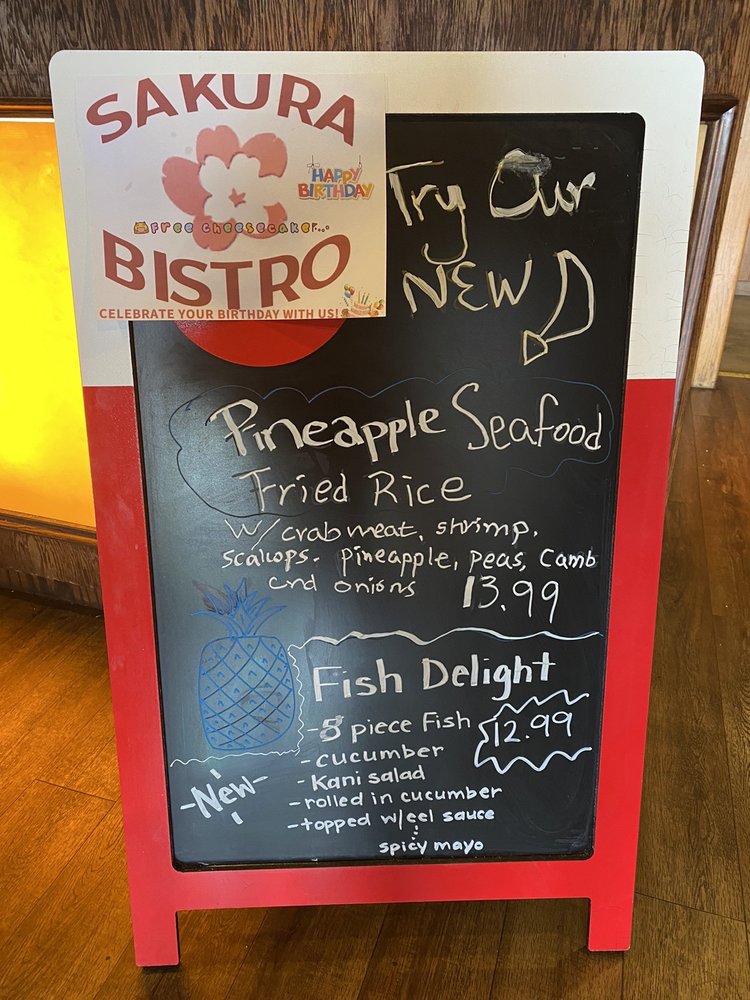 SAKURA
HAPPY
BIRTHDAY
FREE CHEESECAKE...
BISTRO
CELEBRATE YOUR BIRTHDAY WITH US!
Try Our
NEW
Pineapple Seafood
Fried Rice
w/ crab meat, shrimp.
scallops. pineapple, peas, Camb
and onions 13.99
Fish Delight
-5 piece Fish 12.99
-cucumber
-Kani salad
-rolled in cucumber
-topped w/eel sauce
spicy mayo
-New-